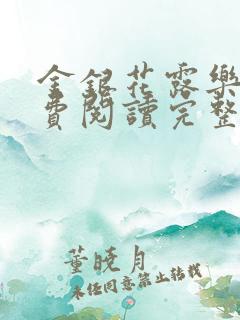 金銀花露樂
費閱讀完整
董曉月
未经同意禁止转载